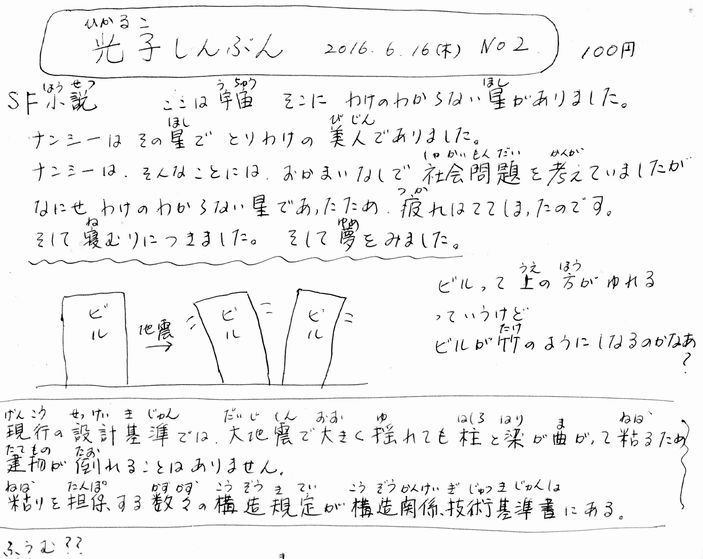 光子しんぶん 2016.6.16(木) No2. 100円
SF小説 ここは宇宙 そこに わけのわからない星がありました。
ナンシーはその星で とりわけの 美人でありました。
ナンシーは、そんなことには、おかまいなしで 社会問題を考えていましたが
なにせ わけのわからない星であったため、疲れはててしまったのです。
そして 寝むりにつきました。 そして 夢をみました。
ビル 地震→ ビル ビル
ビルって 上の方がゆれる
っていうけど
ビルが竹のようにしなるのかなあ?
現行の設計基準では、大地震で大きく揺れても柱と梁が曲がって粘るため
建物が倒れることはありません。
粘りを担保する数々の構造規定が構造関係技術基準書にある。
ふうむ??